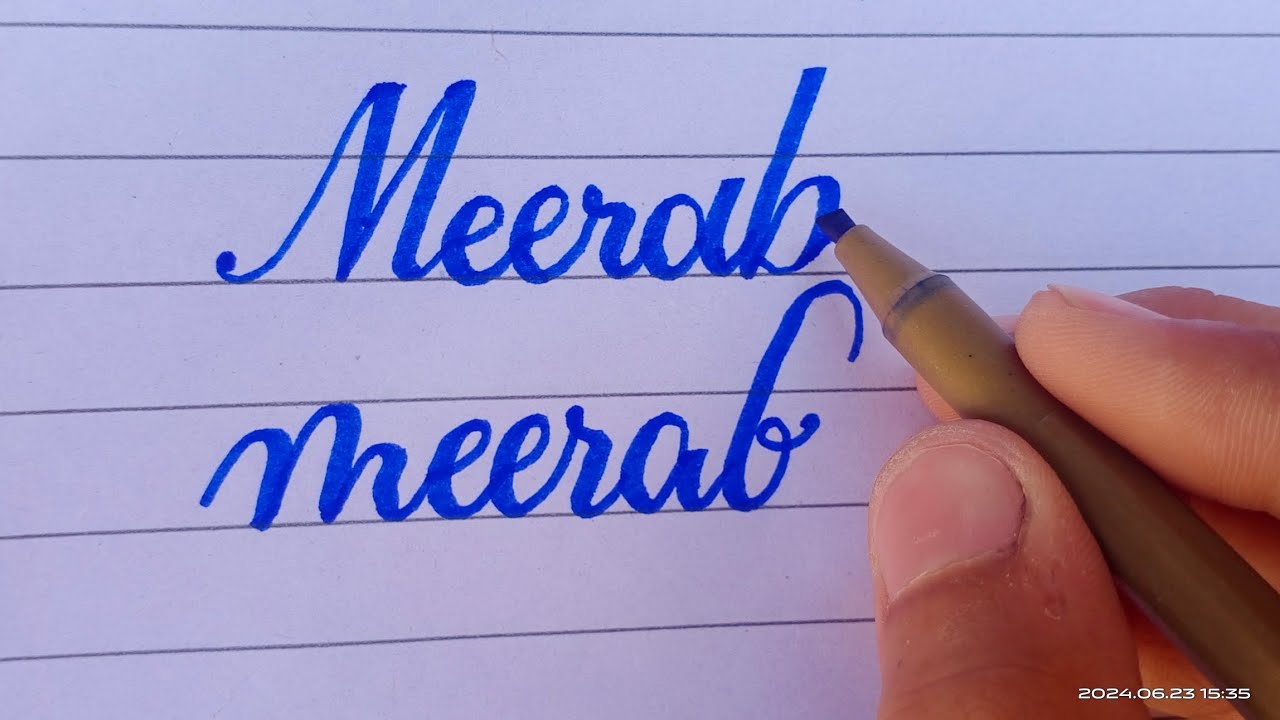 Meerab
meerab
2024.06.23 15:35